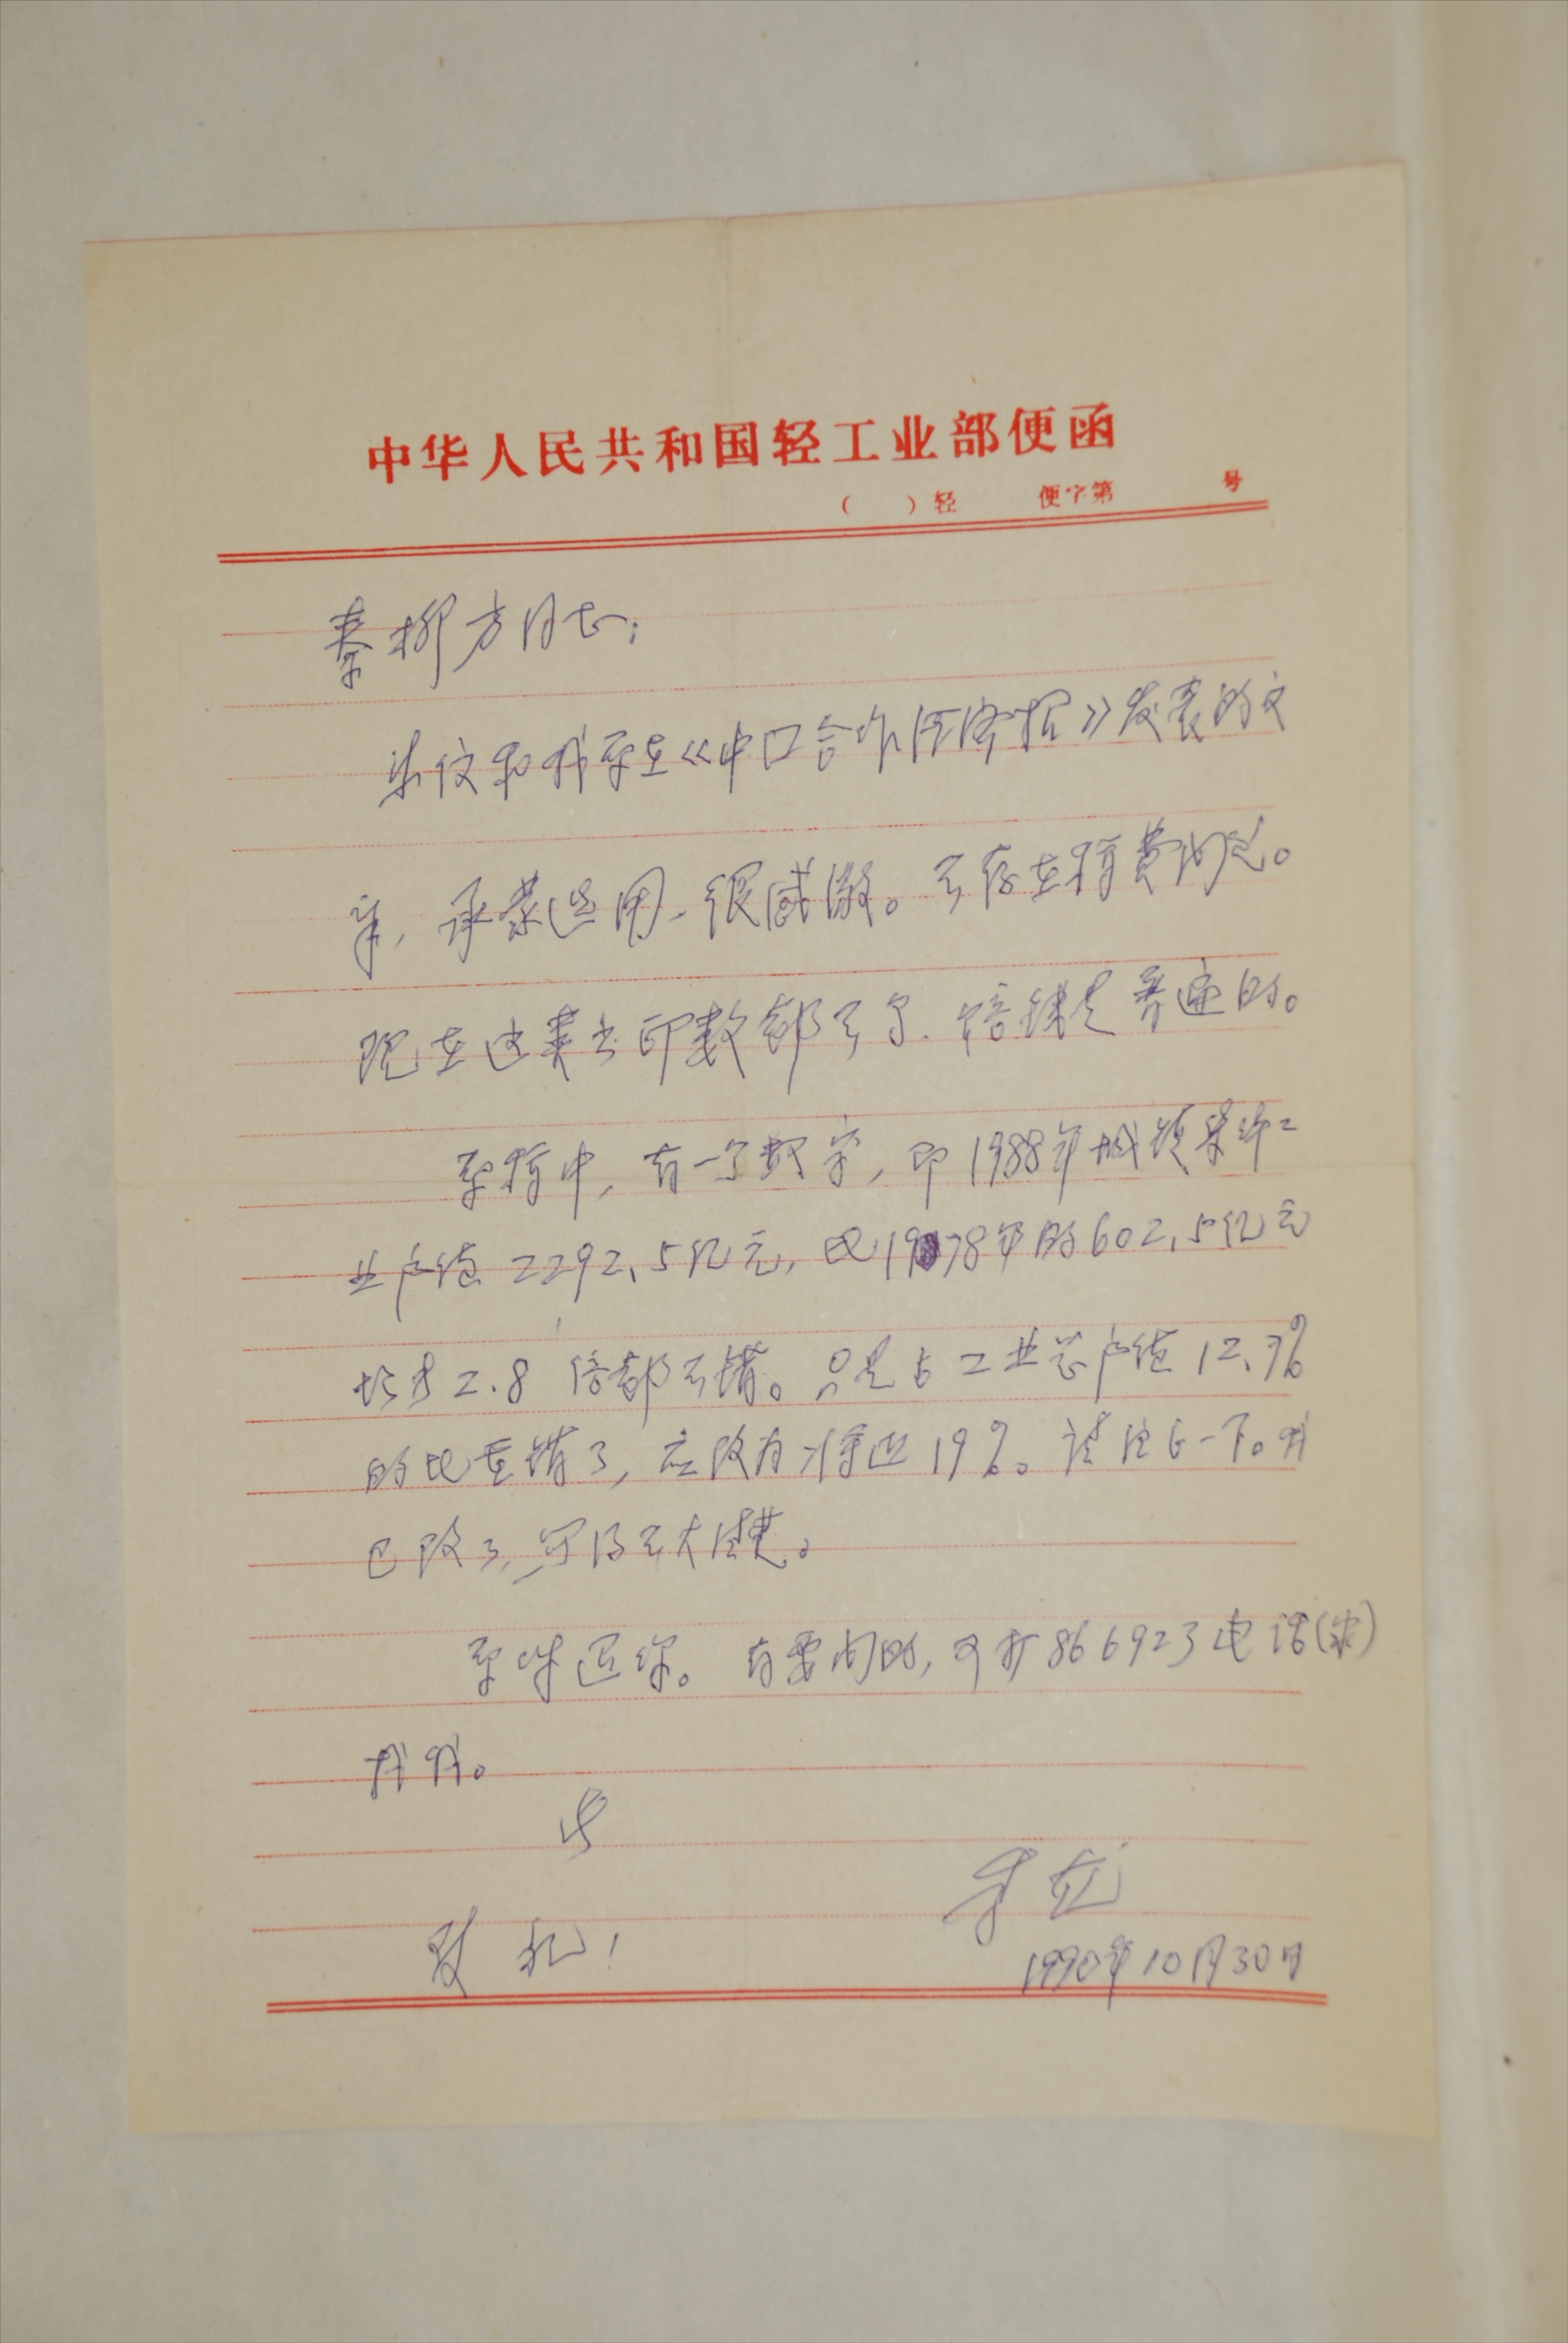 中华人民共和国轻工业部便函
（ ）轻 便字第 号
秦柳方同志：
来信和我原在《中国合作经济报》发表的文
章，承蒙选用，很感激。不存在稿费问题。
现在这类书印数都不多，赔钱是普遍的。
原稿中，有一个数字，即1988年城镇集体工
业产值2292.5亿元，比1978年的602.5亿元
增长2.8倍都不错。只是占工业总产值12.7%
的比重错了，应改为将近19%。请注意一下。我
已改了，写得不大清楚。
原件退你。有要问的，可打866923电话(家)
找我。
此
致礼！
1990年10月30日